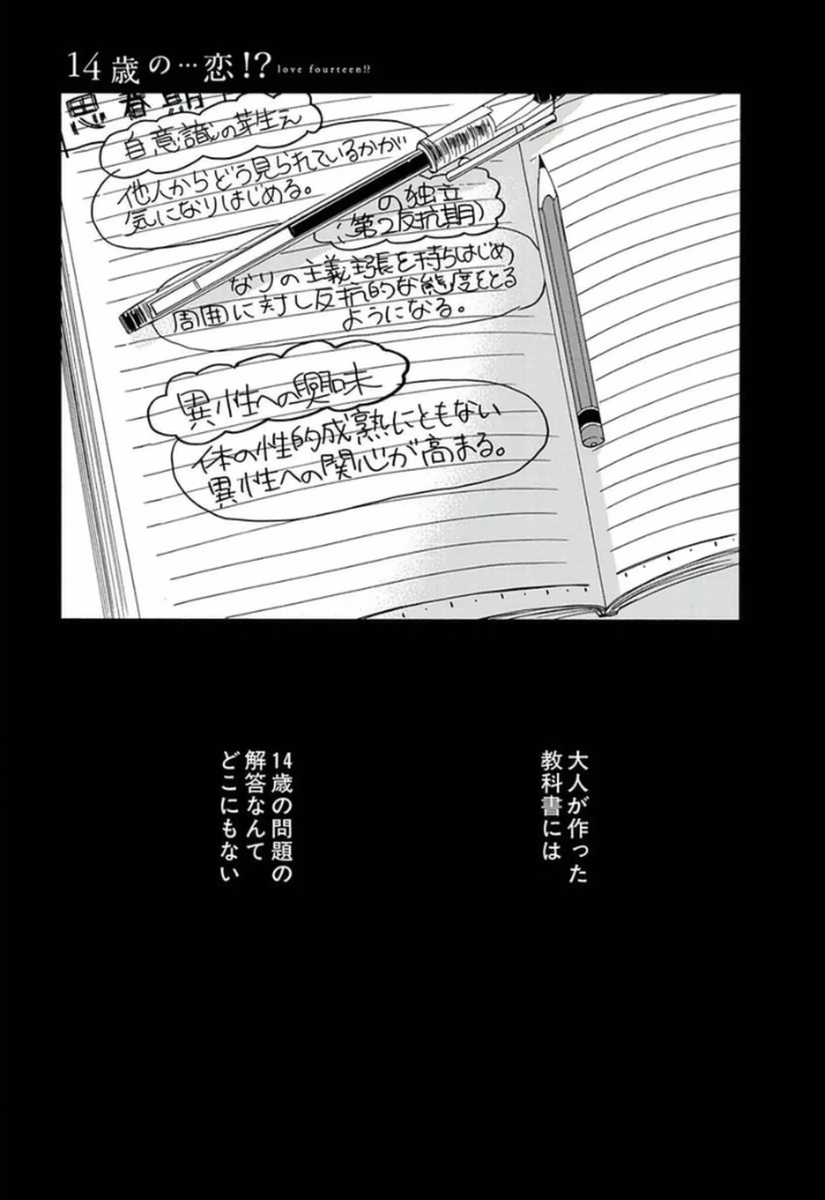 14歳の…恋!?
love fourteen!?
思春期
自意識の芽生え
他人からどう見られているかが
気になりはじめる。
の独立
(第2反抗期)
なりの主義主張を持ちはじめ
周囲に対し反抗的な態度をとる
ようになる。
異性への興味
体の性的成熟にともない
異性への関心が高まる。
大人が作った
教科書には
14歳の問題の
解答なんて
どこにもない